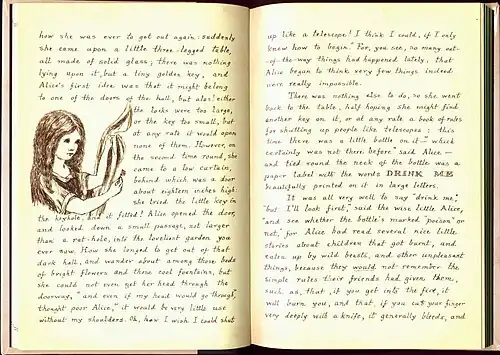 how she was ever to get out again: suddenly
she came upon a little three-legged table,
all made of solid glass; there was nothing
lying upon it, but a tiny golden key, and
Alice's first idea was that it might belong
to one of the doors of the hall, but alas! either
the locks were too large,
or the key too small, but
at any rate it would open
none of them. However, on
the second time round, she
came to a low curtain,
behind which was a door
about eighteen inches high:
she tried the little key in
the keyhole, and it fitted! Alice opened the door,
and looked down a small passage, not larger
than a rat-hole, into the loveliest garden you
ever saw. How she longed to get out of that
dark hall, and wander about among those beds
of bright flowers and those cool fountains, but
she could not even get her head through the
doorway, "and even if my head would go through,"
thought poor Alice, "it would be very little use
without my shoulders. Oh, how I wish I could shut
up like a telescope! I think I could, if I only
knew how to begin." For, you see, so many out-
of-the-way things had happened lately, that
Alice began to think very few things indeed
were really impossible.
There was nothing else to do, so she went
back to the table, half hoping she might find
another key on it, or at any rate a book of rules
for shutting up people like telescopes: this
time there was a little bottle on it—"which
certainly was not there before" said Alice—
and tied round the neck of the bottle was a
paper label with the words DRINK ME
beautifully printed on it in large letters.
It was all very well to say "drink me,"
"but I'll look first," said the wise little Alice,
"and see whether the bottle's marked "poison" or
not," for Alice had read several nice little
stories about children that got burnt, and
eaten up by wild beasts, and other unpleasant
things, because they would not remember the
simple rules their friends had given them,
such as, that, if you get into the fire, it
will burn you, and that, if you cut your finger
very deeply with a knife, it generally bleeds, and